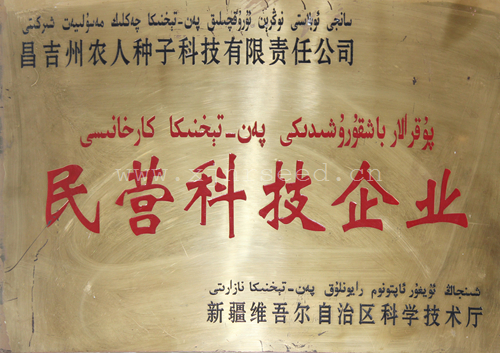 سانجى ئوبلاستى نوڭرېن ئۇرۇقچىلىق پەن-تېخنىكا چەكلىك مەسئۇلىيەت شىركىتى
昌吉州农人种子科技有限责任公司
پۇقرالار باشقۇرۇشىدىكى پەن-تېخنىكا كارخانىسى
民营科技企业
شىنجاڭ ئۇيغۇر ئاپتونوم رايونلۇق پەن-تېخنىكا نازارىتى
新疆维吾尔自治区科学技术厅